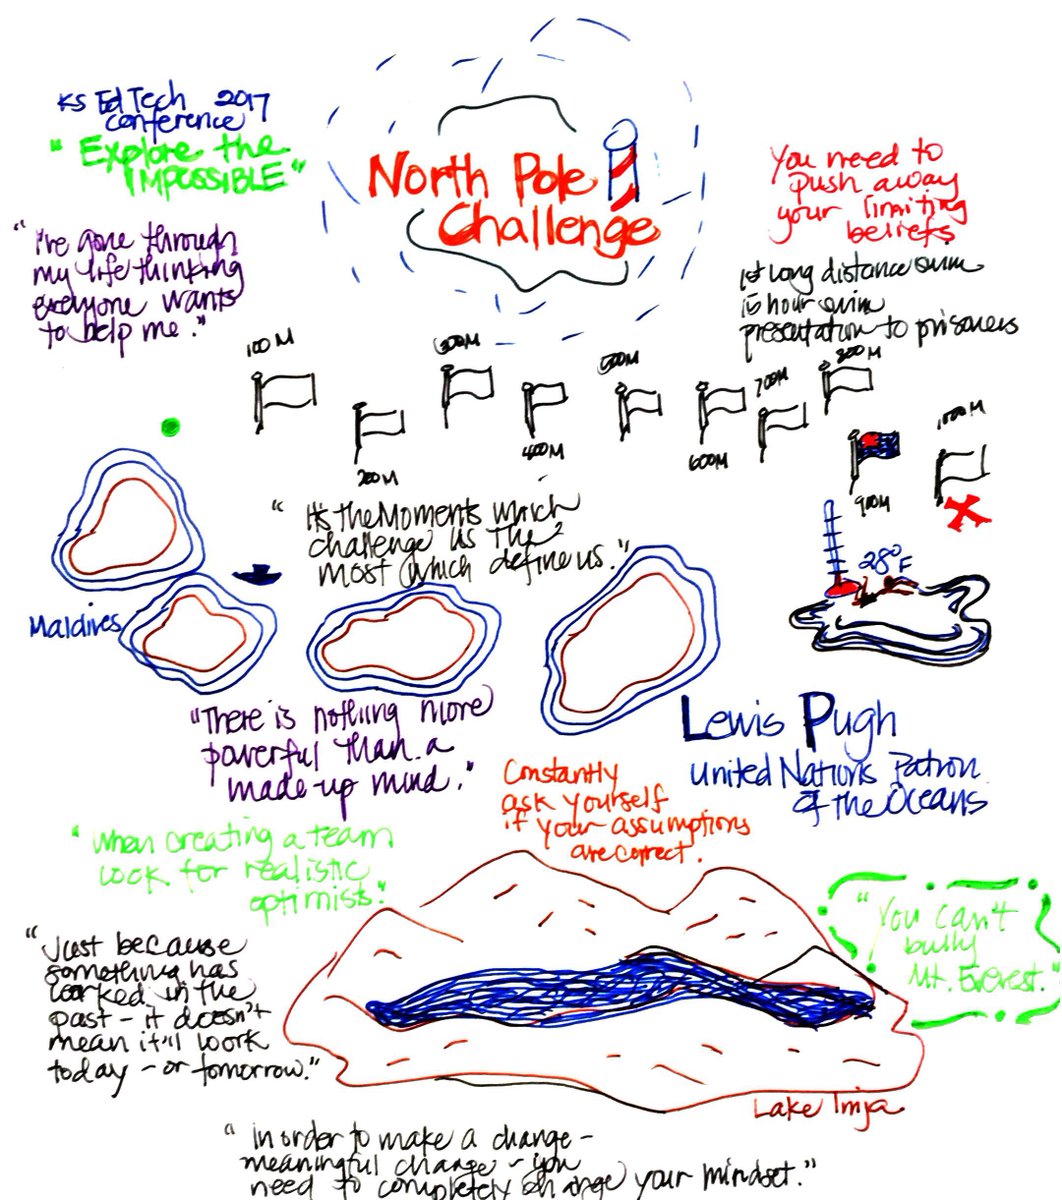 KS Ed Tech 2017
conference
"Explore the
IMPOSSIBLE"
North Pole
Challenge
"I've gone through
my life thinking
everyone wants
to help me."
You need to
push away
your limiting
beliefs
1st long distance swim
15 hour swim
presentation to prisoners
100M
200M
300M
400M
500M
600M
700M
800M
900M
1,000M
28° F
"It's the Moments which
challenge us the
most which define us."
Maldives
"There is nothing more
powerful than a
made-up mind."
Lewis Pugh
United Nations Patron
of the Oceans
Constantly
ask yourself
if your assumptions
are correct.
"When creating a team
look for realistic
optimists."
"You can't
bully
Mt. Everest."
"Just because
something has
worked in the
past - it doesn't
mean it'll work
today - or tomorrow."
Lake Imja
"In order to make a change -
meaningful change - you
need to completely change your mindset."